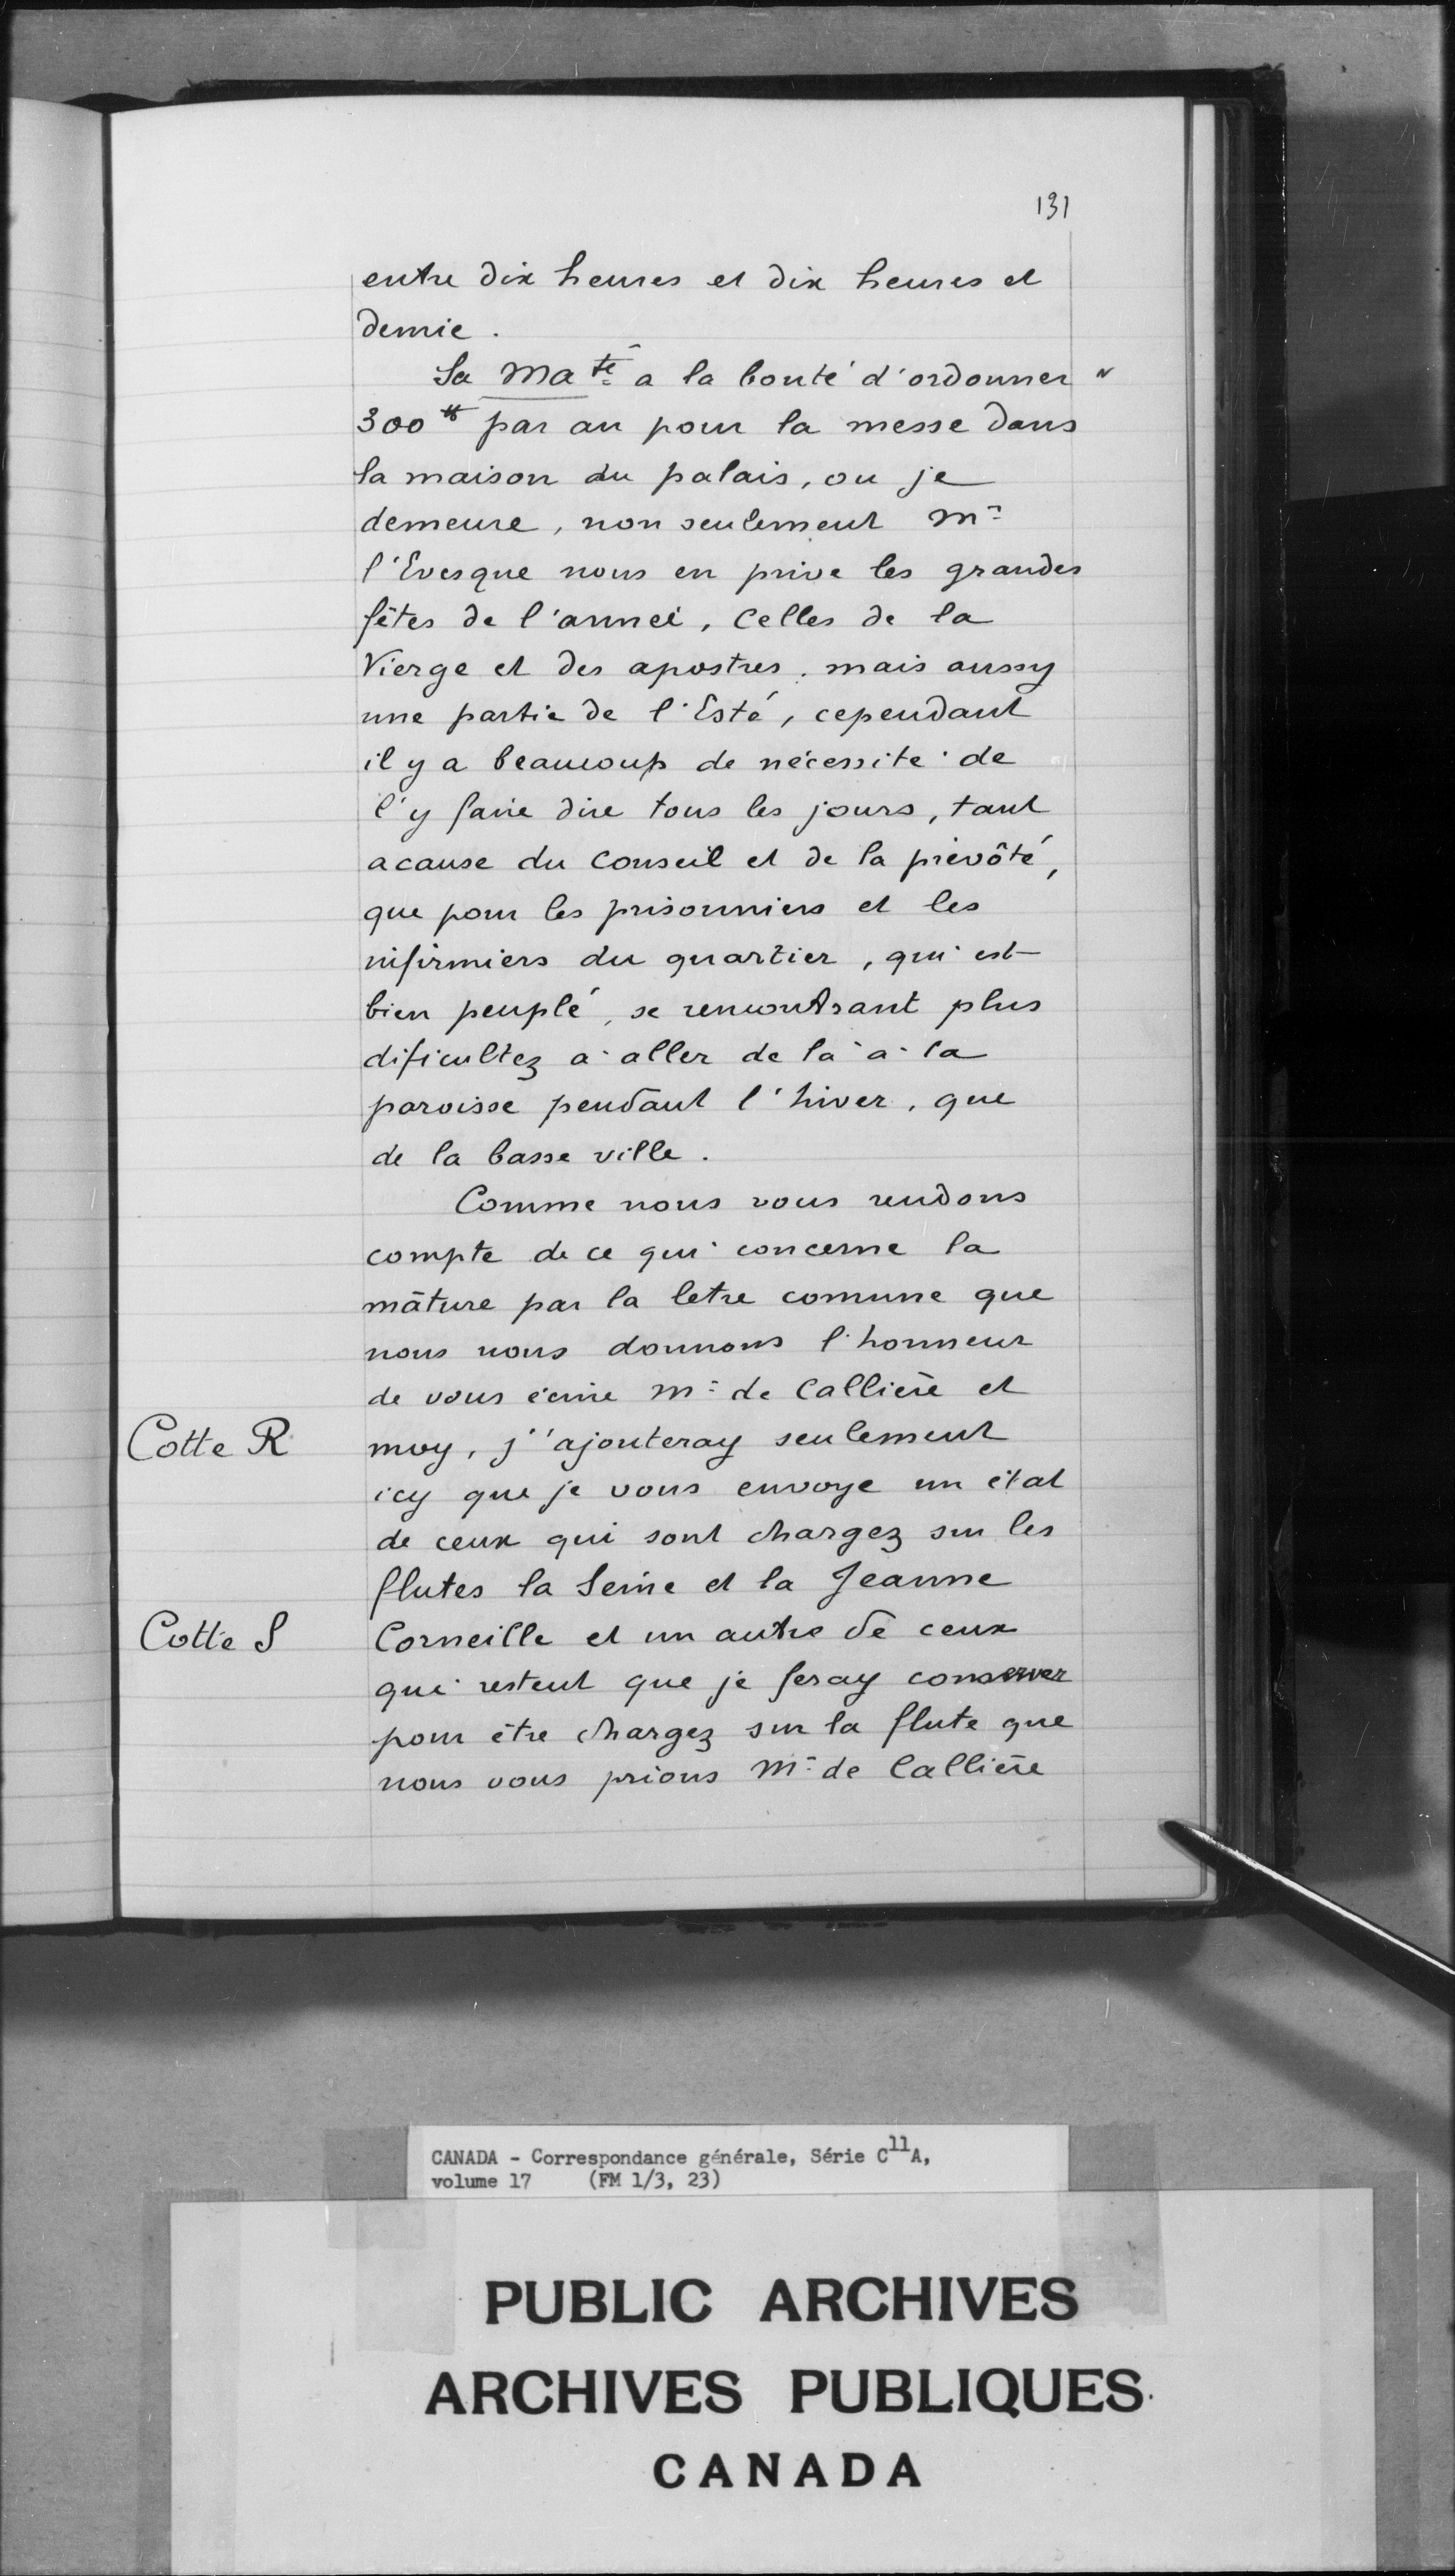 131
entre dix heures et dix heures et
demie.
Sa Ma té a la bonté d'ordonner "
300 ## par an pour la messe dans
la maison du palais, ou je
demeure, non seulement Mr
l'Evesque nous en prive les grandes
fêtes de l'année, Celles de la
Vierge et des apostres. mais aussy
une partie de l'Esté, cependant
il y a beaucoup de nécessité de
l'y faire dire tous les jours, tant
acause du Conseil et de la prévôté,
que pour les prisonniers et les
infirmiers du quartier, qui est
bien peuplé, se rencontrant plus
dificultez à aller de là à la
paroisse pendant l'hiver, que
de la basse ville.
Comme nous vous rendons
compte de ce qui concerne la
mâture par la letre comune que
nous nous donnons l'honneur
de vous écrire Mr de Callière et
Cotte R moy, j'ajouteray seulement
icy que je vous envoye un état
de ceux qui sont chargez sur les
flutes la Seine et la Jeanne
Cotte S Corneille et un autre de ceux
qui restent que je feray conserver
pour être chargez sur la flute que
nous vous prions Mr de Callière
CANADA - Correspondance générale, Série C11A,
volume 17 (FM 1/3, 23)
PUBLIC ARCHIVES
ARCHIVES PUBLIQUES
CANADA